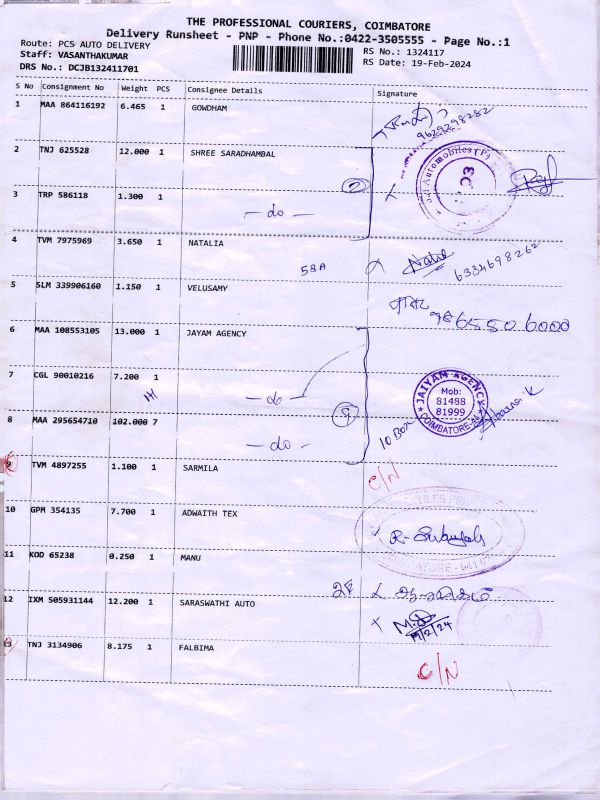 THE PROFESSIONAL COURIERS, COIMBATORE
Delivery Runsheet - PNP - Phone No.:0422-3505555 - Page No.:1
Route: PCS AUTO DELIVERY
RS No.: 1324117
Staff: VASANTHAKUMAR
RS Date: 19-Feb-2024
DRS No.: DCJB132411701
S No Consignment No Weight PCS Consignee Details Signature
1 MAA 864116192 6.465 1 GOWDHAM
9629298282
2 TNJ 625528 12.000 1 SHREE SARADHAMBAL
Automobiles (P)
2
3 TRP 586118 1.300 1
- do -
4 TVM 7975969 3.650 1 NATALIA
58A
6384698262
5 SLM 339906160 1.150 1 VELUSAMY
9865506000
6 MAA 108553105 13.000 1 JAYAM AGENCY
7 CGL 90010216 7.200 1
- do -
JAIYAM AGENCY
Mob:
81488
81999
COIMBATORE
9
10 Box
8 MAA 295654710 102.000 7
- do -
9 TVM 4897255 1.100 1 SARMILA
C/N
10 GPM 354135 7.700 1 ADWAITH TEX
11 KOD 65238 0.250 1 MANU
12 IXM 505931144 12.200 1 SARASWATHI AUTO
19/2/24
13 TNJ 3134906 8.175 1 FALBIMA
C/N